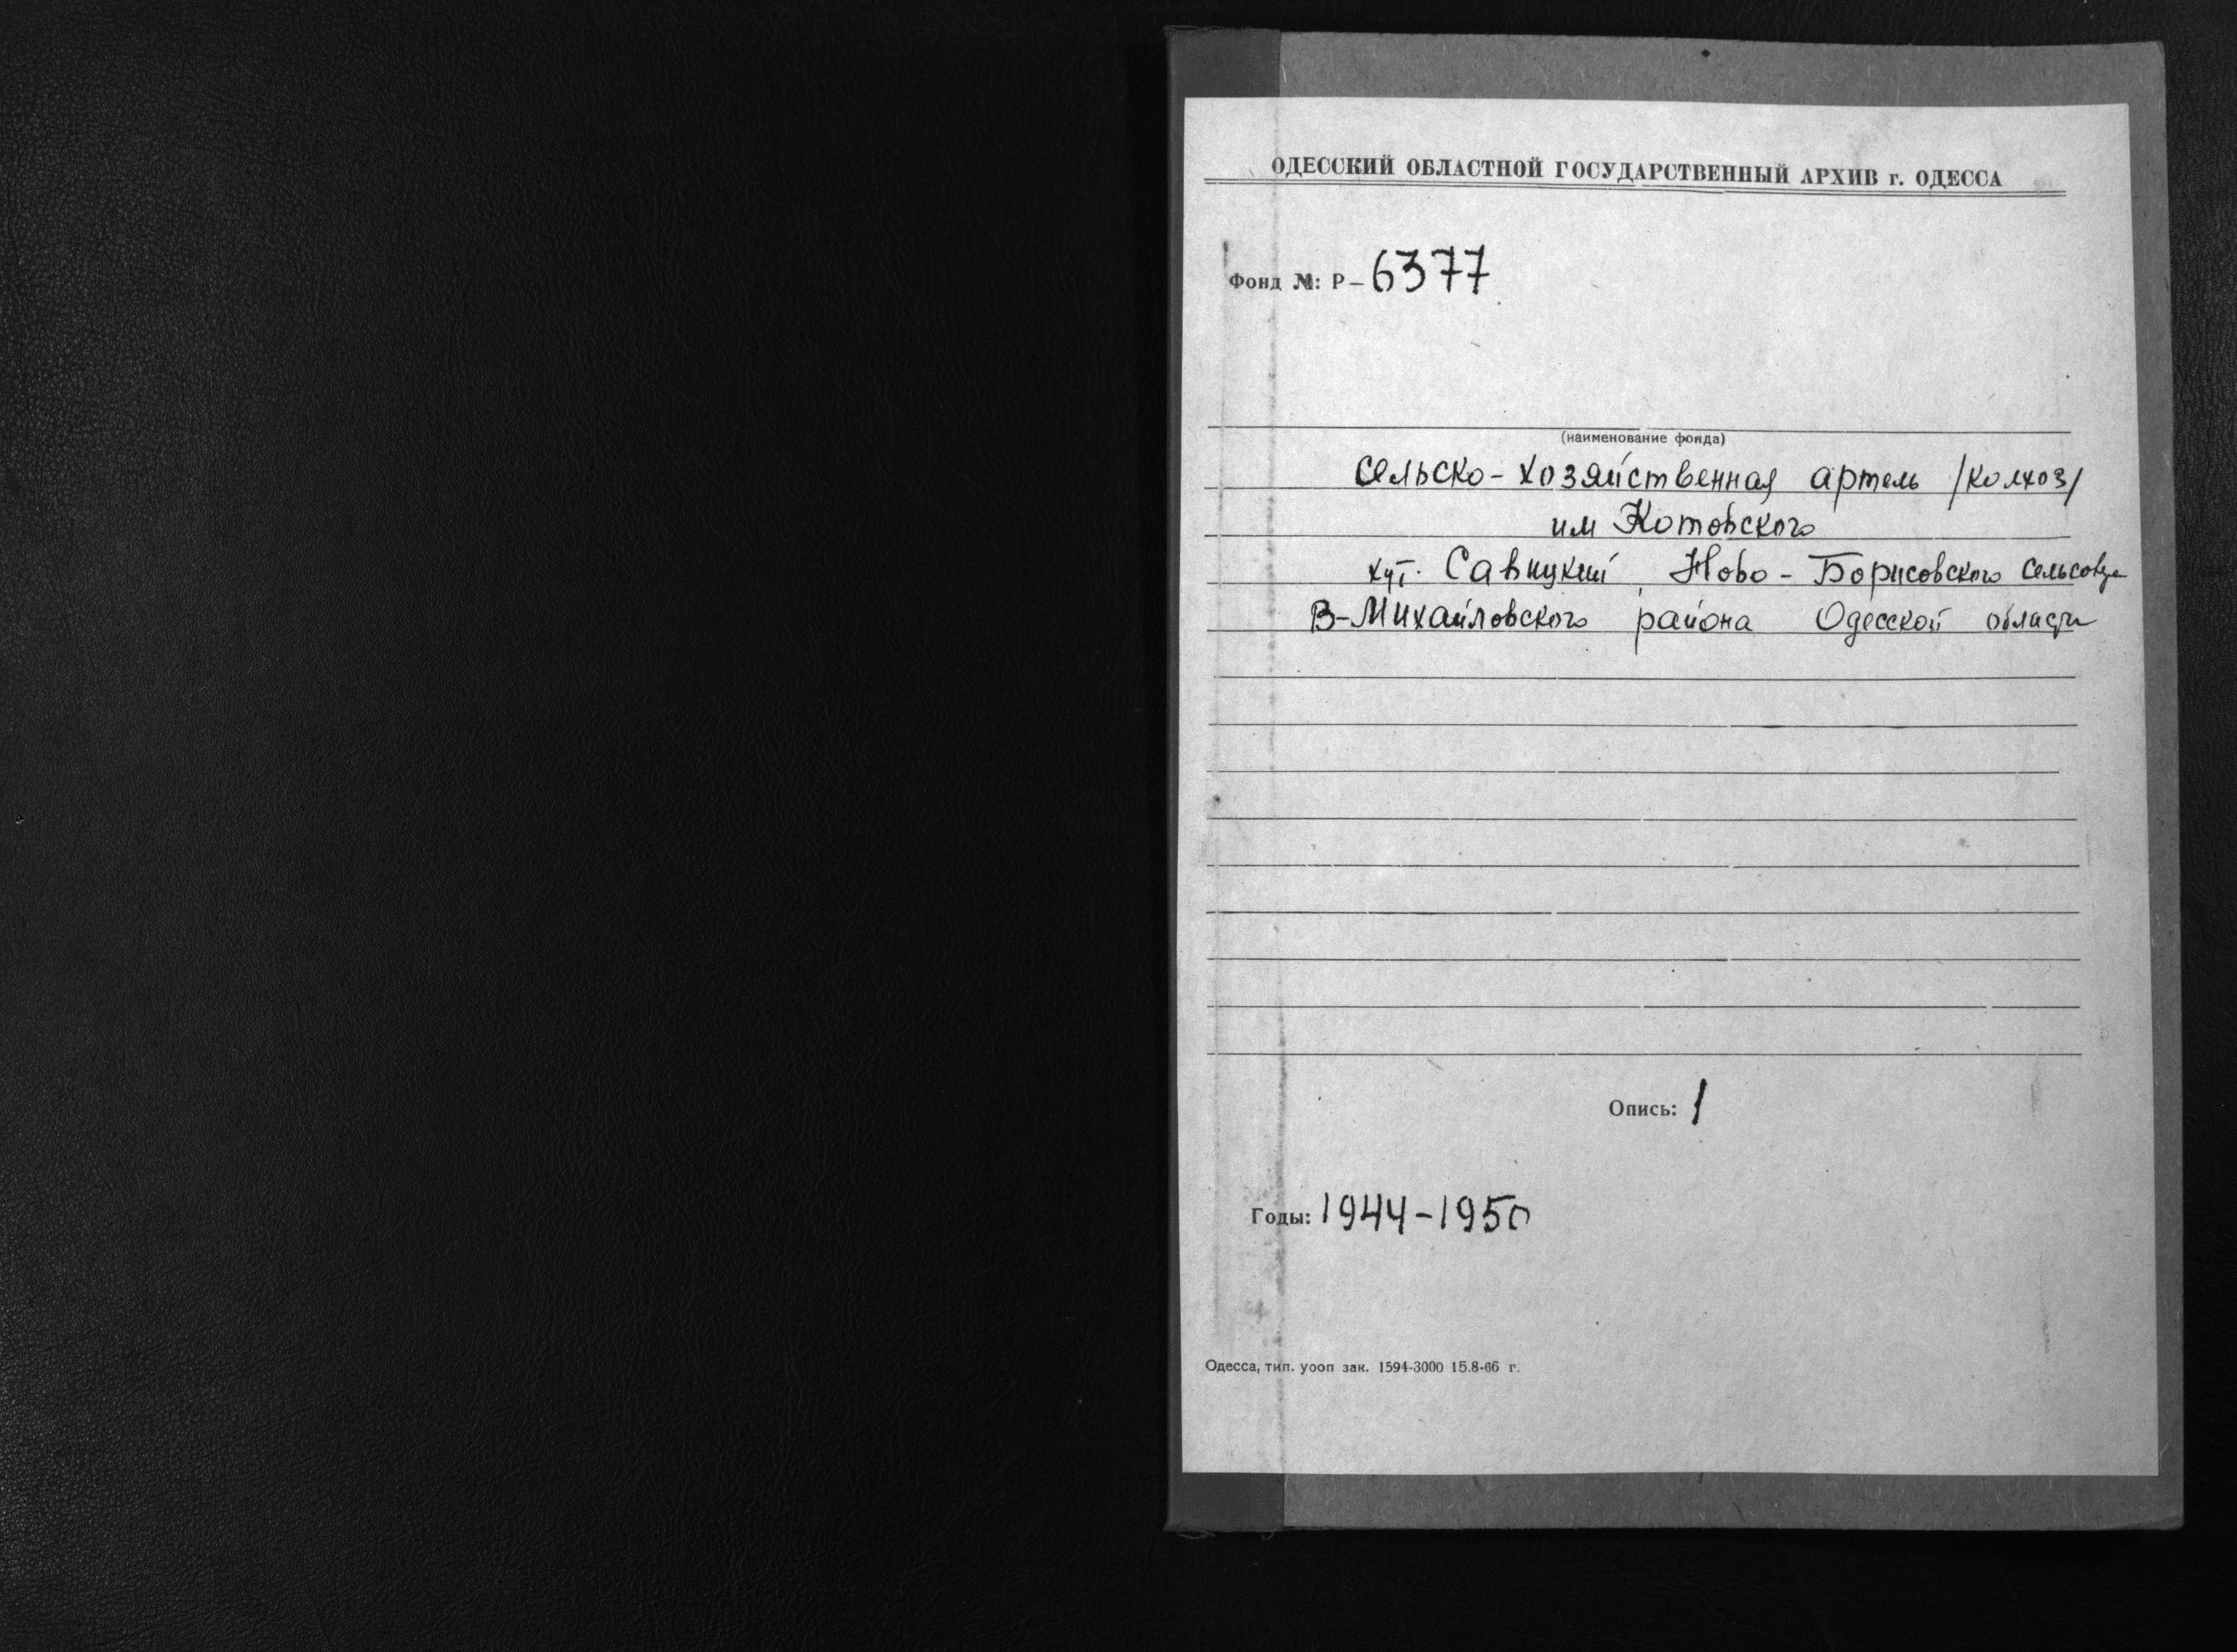 ОДЕССКИЙ ОБЛАСТНОЙ ГОСУДАРСТВЕННЫЙ АРХИВ г. ОДЕССА
Фонд №: Р— 6377
(наименование фонда)
Сельско-хозяйственная артель /колхоз/
им Котовского
хут. Савицкий Ново-Борисовского сельсовета
В-Михайловского района Одесской области
Опись: 1
Годы: 1944-1950
Одесса, тип. уооп зак. 1594-3000 15.8-66 г.